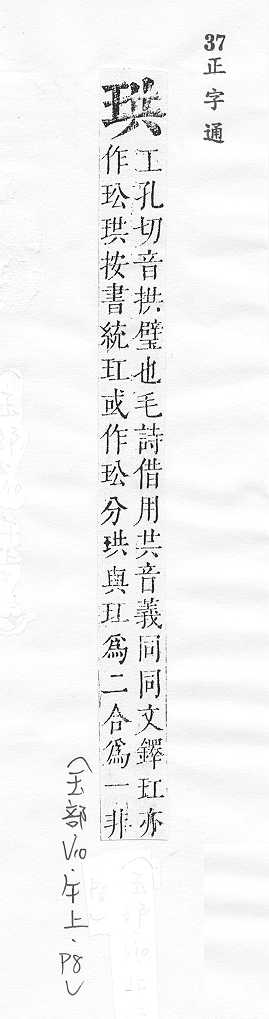 37
正字通
珙
工孔切音拱璧也毛詩借用共音義同同文鐸㺬亦
作玜珙按書統㺬或作玜分珙與㺬爲二合爲一非
(玉部V10.午上.P8)